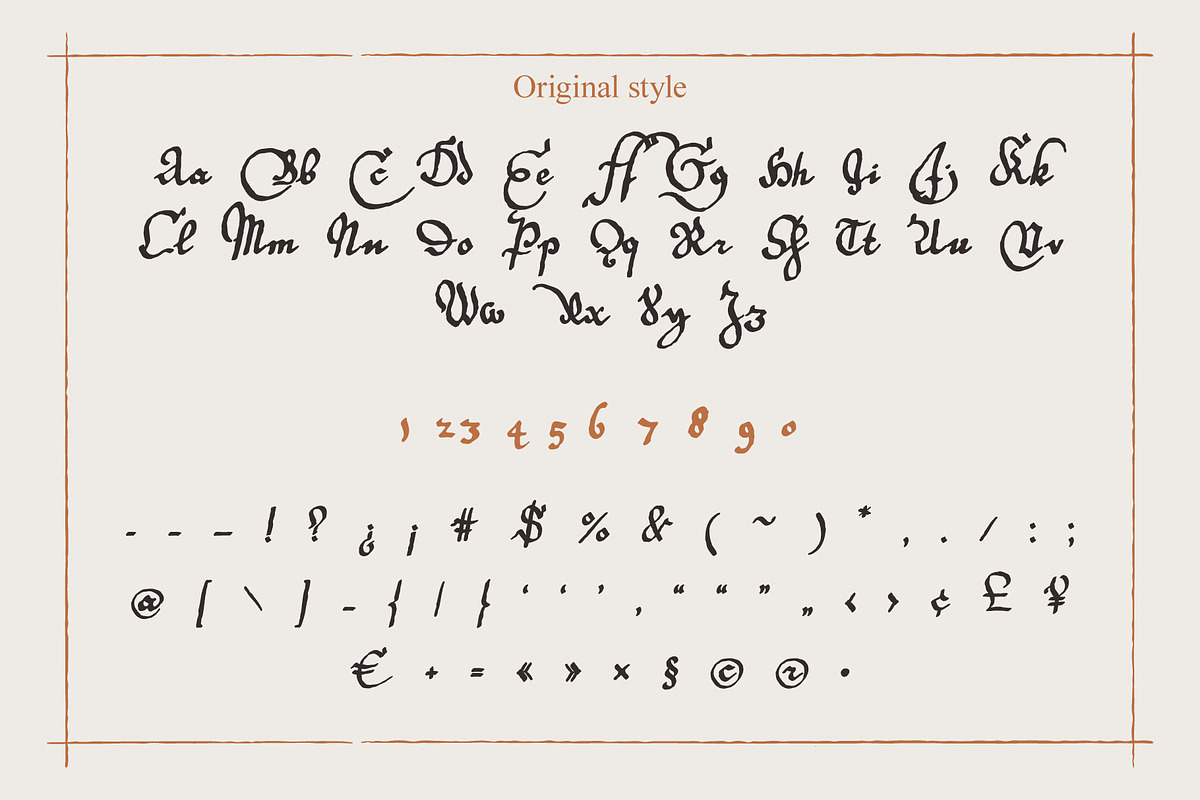 Original style
Aa Bb Cc Dd Ee Ff Gg Hh Ii Jj Kk
Ll Mm Nn Oo Pp Qq Rr Sſ Tt Uu Vv
Ww Xx Yy Zz
1 2 3 4 5 6 7 8 9 0
- - – ! ? ¿ ¡ # $ % & ( ~ ) * , . / : ;
@ [ \ ] - { | } ‘ ‘ ’ , “ “ ” „ ‹ › ¢ £ ¥
€ + = « » × § © ® •